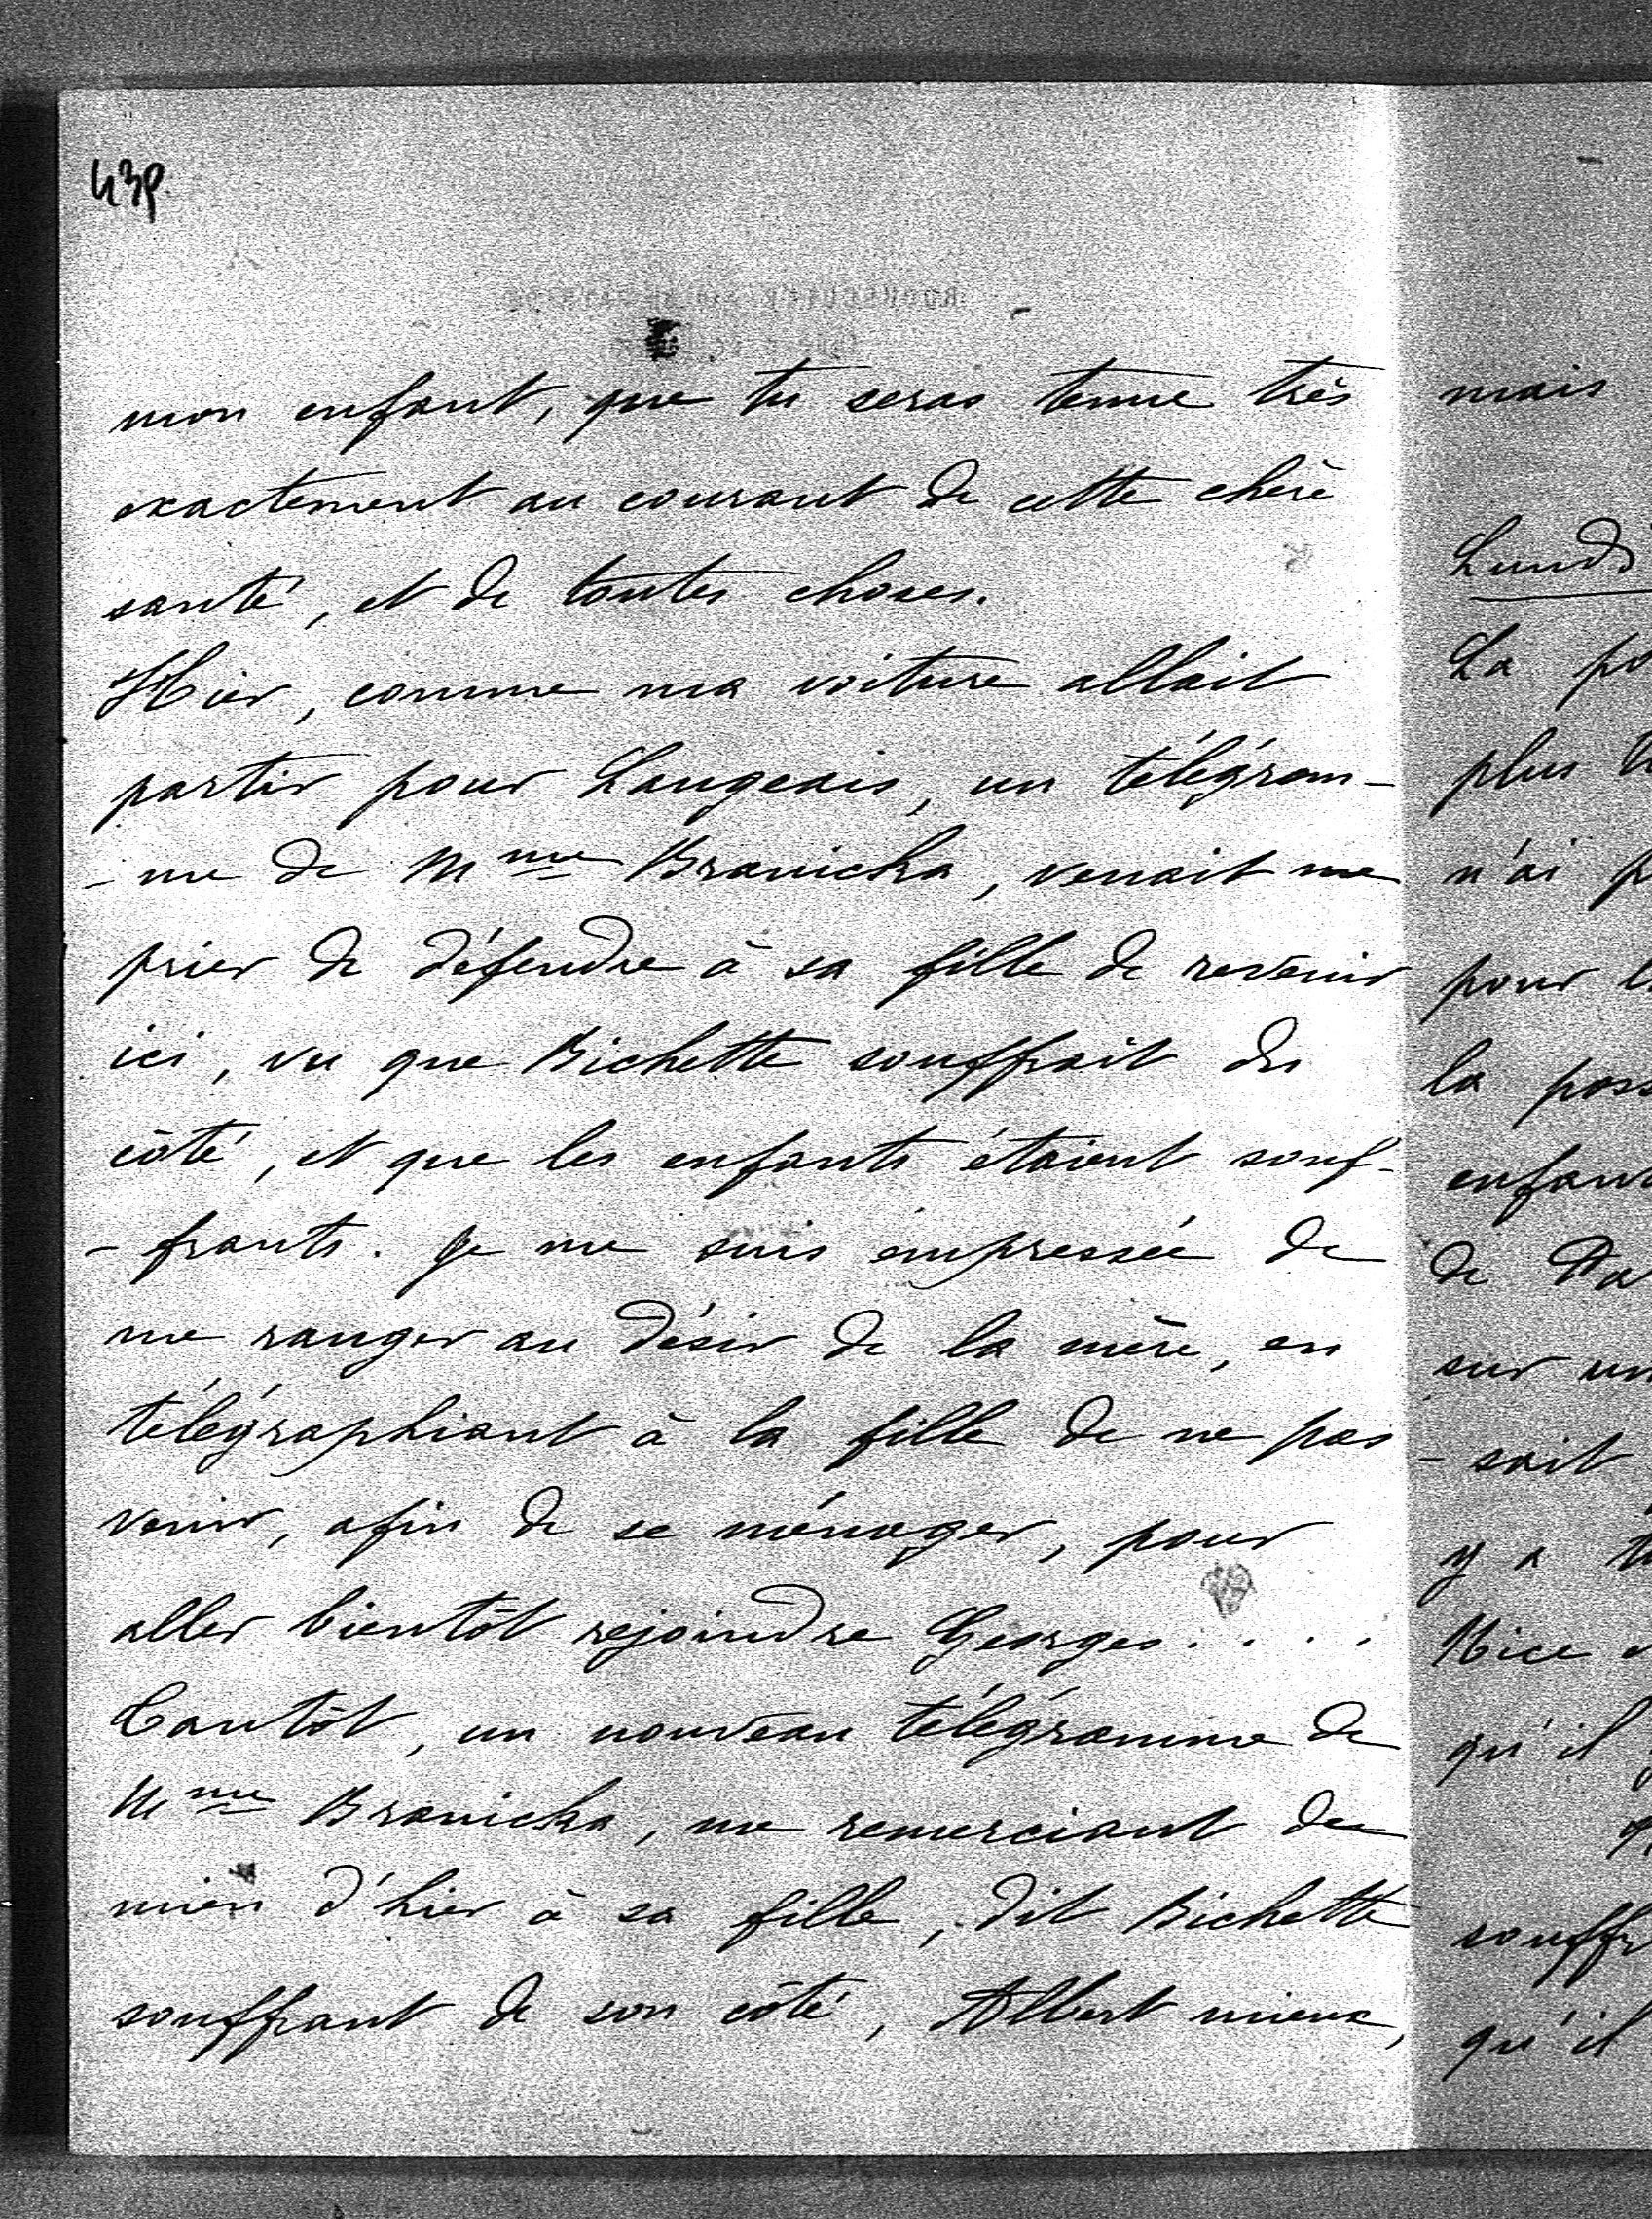 mon enfant, que tu seras tenue très
exactement au courant de cette chère
santé, et de toutes choses.
Hier, comme ma voiture allait
partir pour Langeais, un télégram-
-me de Mme Branicka, venait me
prier de défendre à sa fille de revenir
ici, vu que Bichette souffrait du
côté, et que les enfants étaient souf-
-frants. Je me suis empressée de
me ranger au désir de la mère, en
télégraphiant à la fille de ne pas
venir, afin de se ménager, pour
aller bientôt rejoindre Georges....
Tantôt, un nouveau télégramme de
Mme Branicka, me remerciant du
mien d'hier à sa fille, dit Bichette
souffrant de son côté, Albert mieux,
mais
Lundi
La
plus
n'ai
pour
la
de
sur
-sait
y a
Nice
qu'il
qu'il